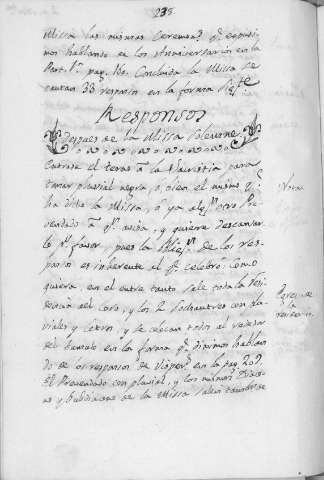 238
Missa las mismas Ceremas. q. espusi-
mos hablando de los Aniversarios en la
Part. 1ª pag. 160. Concluida la Missa se
cantan 33 respons. en la forma sigte
Responsos
Despues de la Missa solemne
Entrase el terno à la Sacristia para
tomar pluvial negro, ò bien el mismo q.
ha dicho la Missa, ò ya algun otro Pre-
vendado à qn. avisa, y quiere descansar
lo pr. favor, pues la de los res-
ponsos es inherente al q. celebrò. Como
quiera, en el entre tanto sale toda la Resi-
dencia del Coro, y los 2 Sochantres con plu-
viales y cetros, y se colocan todos al rededor
del tumulo en la forma q. diximos hablan-
do de los responsos de Visper. en la pag. 207.
El Prevendado con pluvial, y los mismos Diaco-
no y Subdiacono de la Missa salen tambien de
Nota